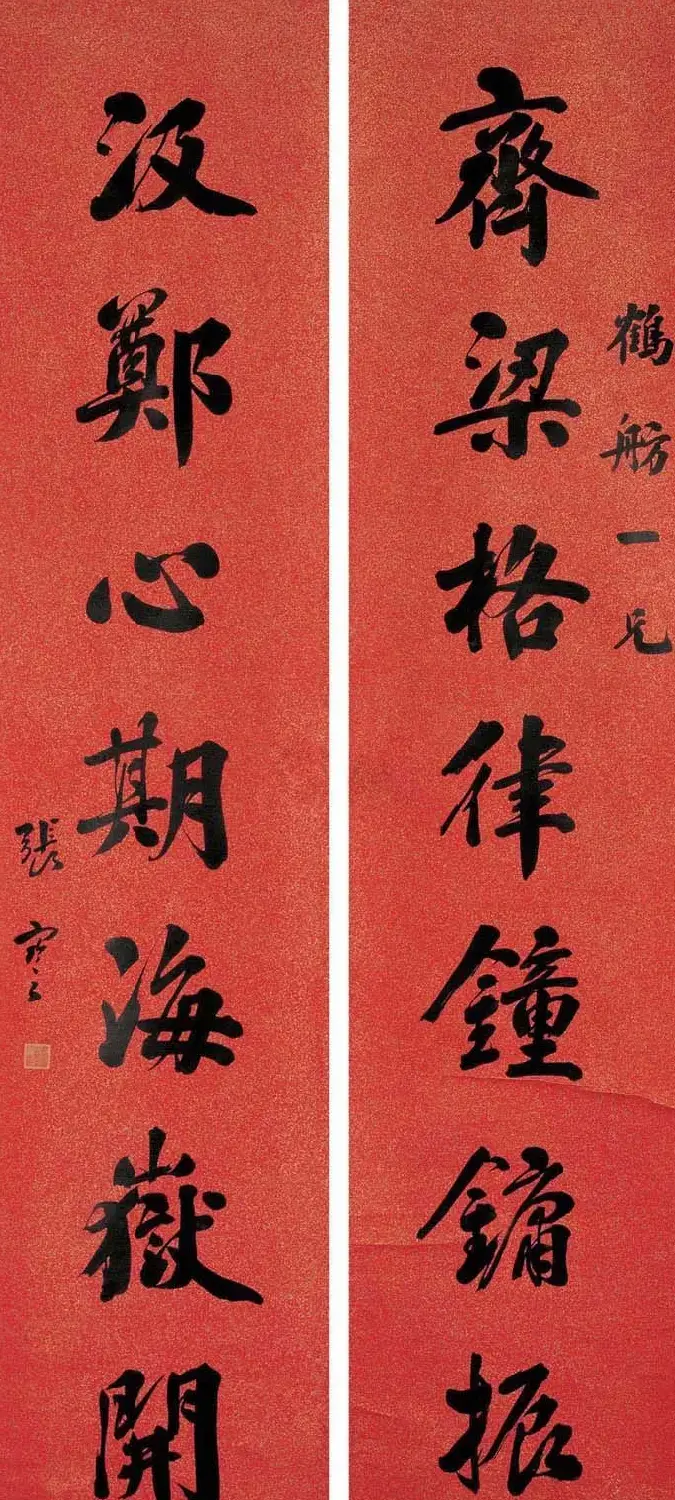 鶴舫一兄
齊梁格律鐘鏞振
汲鄭心期海嶽開
張謇